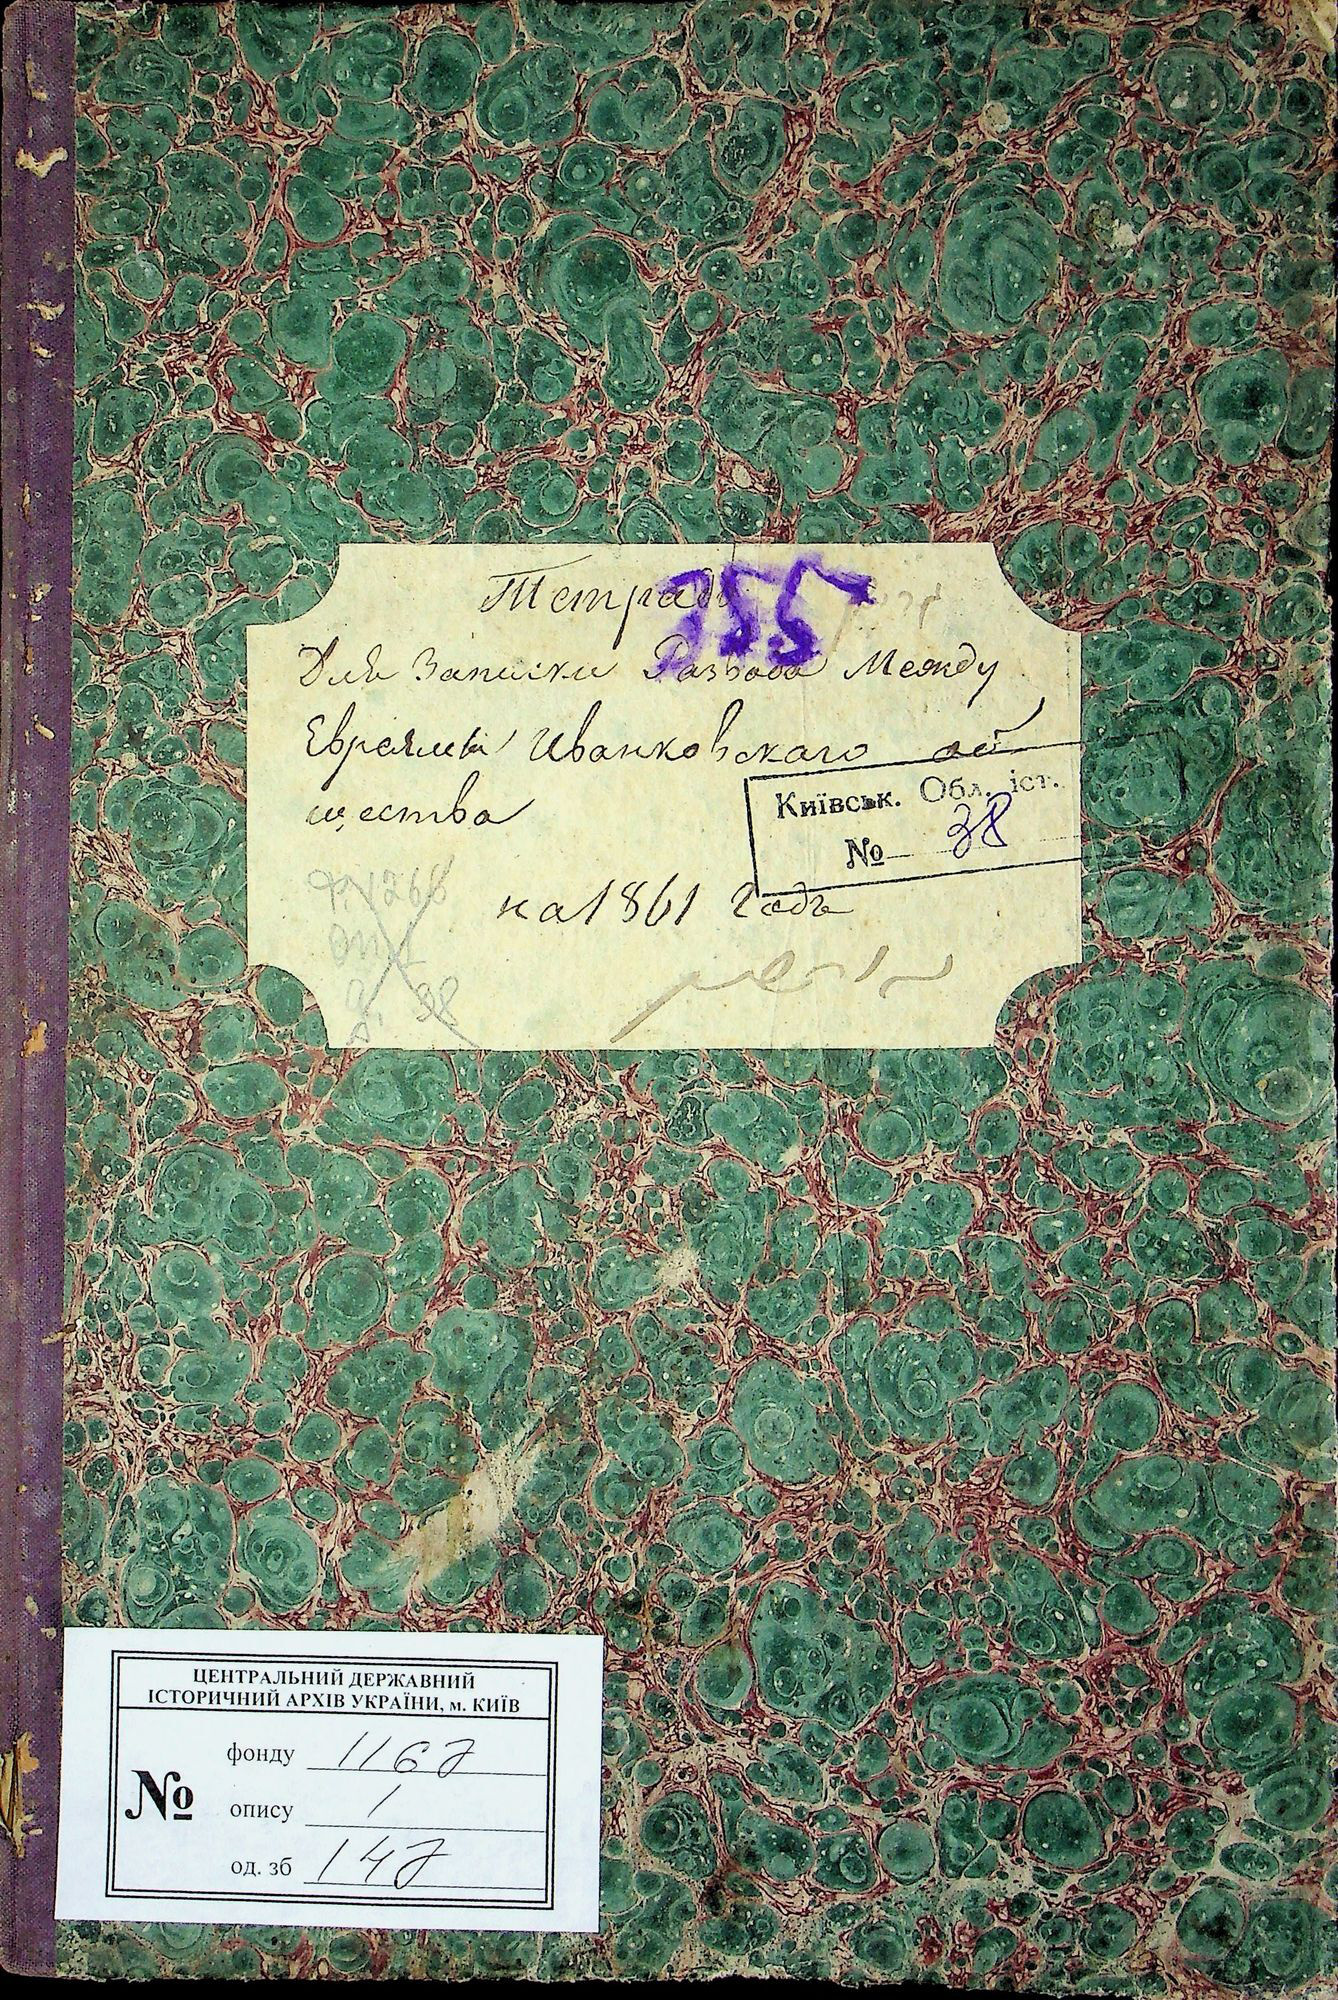 Тетрадь
355
Для Записки Развода Между
Евреями Иванковскаго об
щества
Київськ. Обл. іст.
№ 38
на 1861 Годъ
Ф. 1268
оп. 1
д. 38
ЦЕНТРАЛЬНИЙ ДЕРЖАВНИЙ
ІСТОРИЧНИЙ АРХІВ УКРАЇНИ, м. КИЇВ
№
фонду 1167
опису 1
од. зб 147